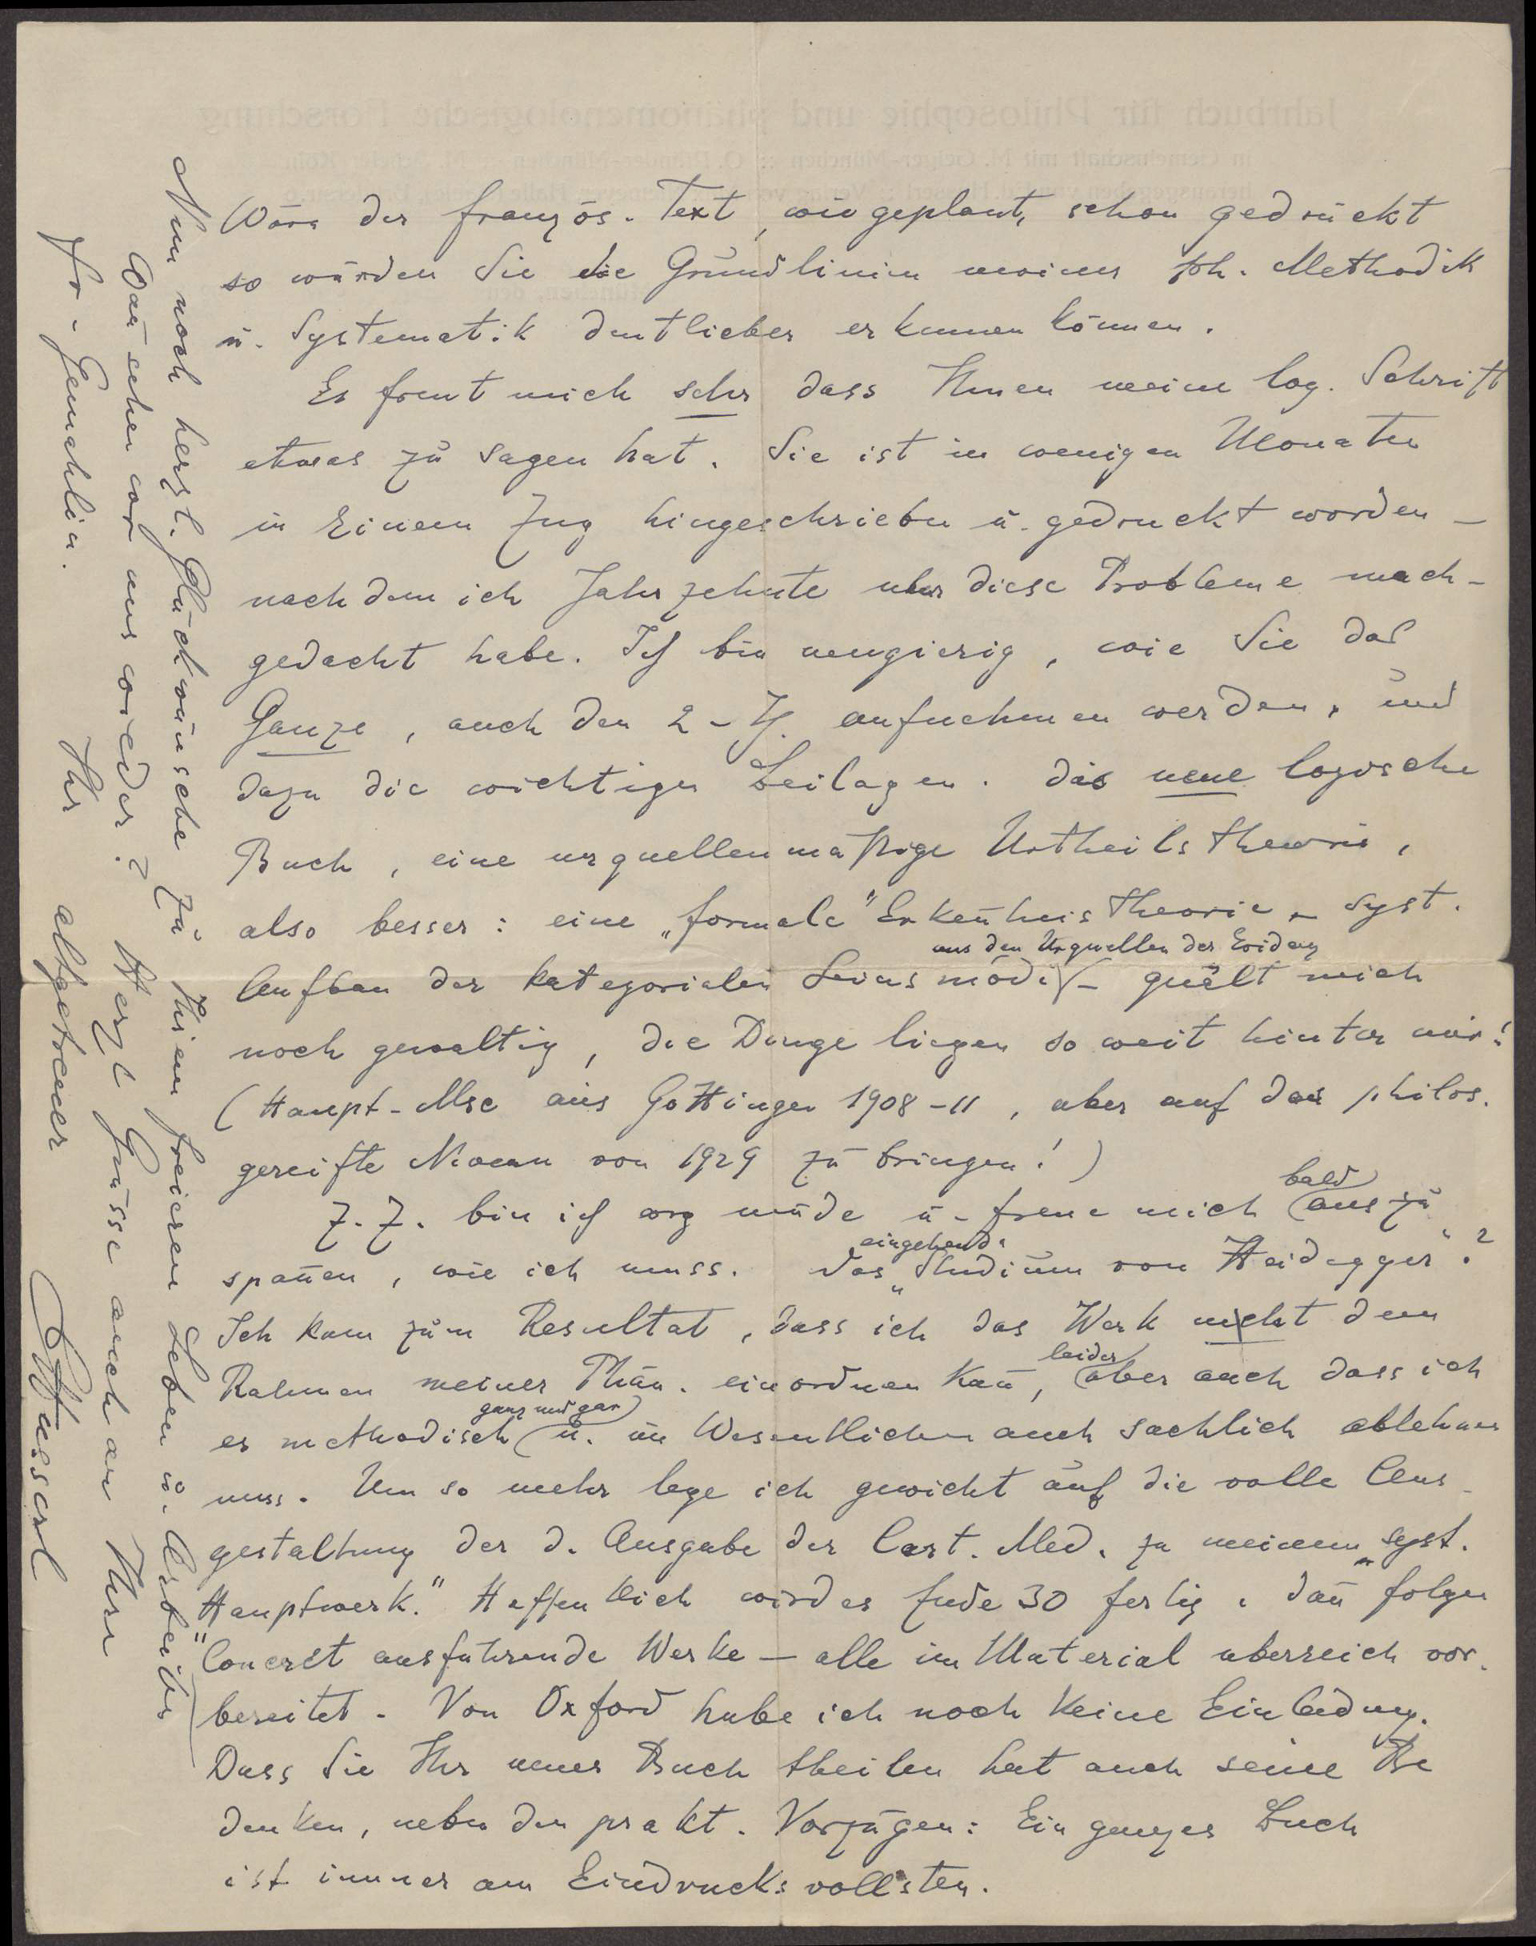 Wäre der französ. Text, wie geplant, schon gedruckt
so würden Sie die Grundlinien meiner ph. Methodik
u. Systematik deutlicher erkennen können.
Es freut mich sehr dass Ihnen meine log. Schrift
etwas zu sagen hat. Sie ist in wenigen Monaten
in Einem Zug hingeschrieben u. gedruckt worden –
nachdem ich Jahrzehnte über diese Probleme nach-
gedacht habe. Ich bin neugierig, wie Sie das
Ganze, auch den 2. Th. aufnehmen werden, und
dazu die wichtigen Beilagen. Das neue logische
Buch, eine urquellenmäßige Urtheilstheorie,
also besser: eine „formale" Erkenntnistheorie – syst.
aus den Urquellen der Evidenz
Aufbau der kategorialen Seinsmodi – quält mich
noch gewaltig, die Dinge liegen so weit hinter mir!
(Haupt-Msc aus Göttingen 1908-11, aber auf das philos.
gereifte Niveau von 1929 zu bringen!)
Z.Z. bin ich arg müde u. freue mich bald auszu
spanen, wie ich muss. Das „eingehende Studium von Heidegger"?
Ich kam zum Resultat, dass ich das Werk nicht dem
Rahmen meiner Phän. einordnen kan, leider aber auch dass ich
es methodisch ganz und gar u. im Wesentlichen auch sachlich ablehnen
muss. Um so mehr lege ich gewicht auf die volle Aus-
gestaltung der d. Ausgabe der Cart. Med. zu meinem „syst.
Hauptwerk." Hoffentlich wird es Ende 30 fertig, dan folgen
"Concret ausführende Werke – alle im Material überreich vor-
bereitet. Von Oxford habe ich noch keine Einladung.
Dass Sie Ihr neues Buch theilen hat auch seine Be
denken, neben den prakt. Vorzügen: Ein ganzes Buch
ist immer am Eindrucksvollsten.
Nun noch herzl. Glückwünsche zu Ihrem freieren Leben u. Arbeiten
Wan sehen wir uns wieder? Herzl Grüsse auch an Ihre
Fr. Gemahlin. Ihr altgetreuer
EHusserl